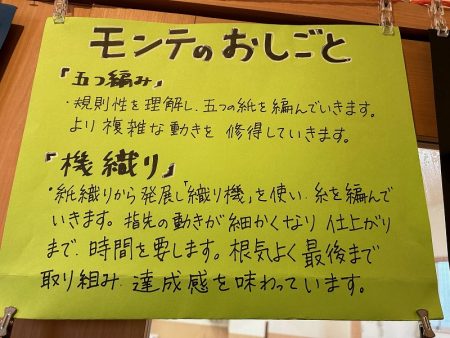 モンテのおしごと
「五つ編み」
・規則性を理解し、五つの紙を編んでいきます。
より複雑な動きを 修得していきます。
「機織り」
・紙織りから発展し「織り機」を使い、糸を編んで
いきます。指先の動きが細かくなり 仕上がり
まで、時間を要します。根気よく最後まで
取り組み、達成感を味わっています。